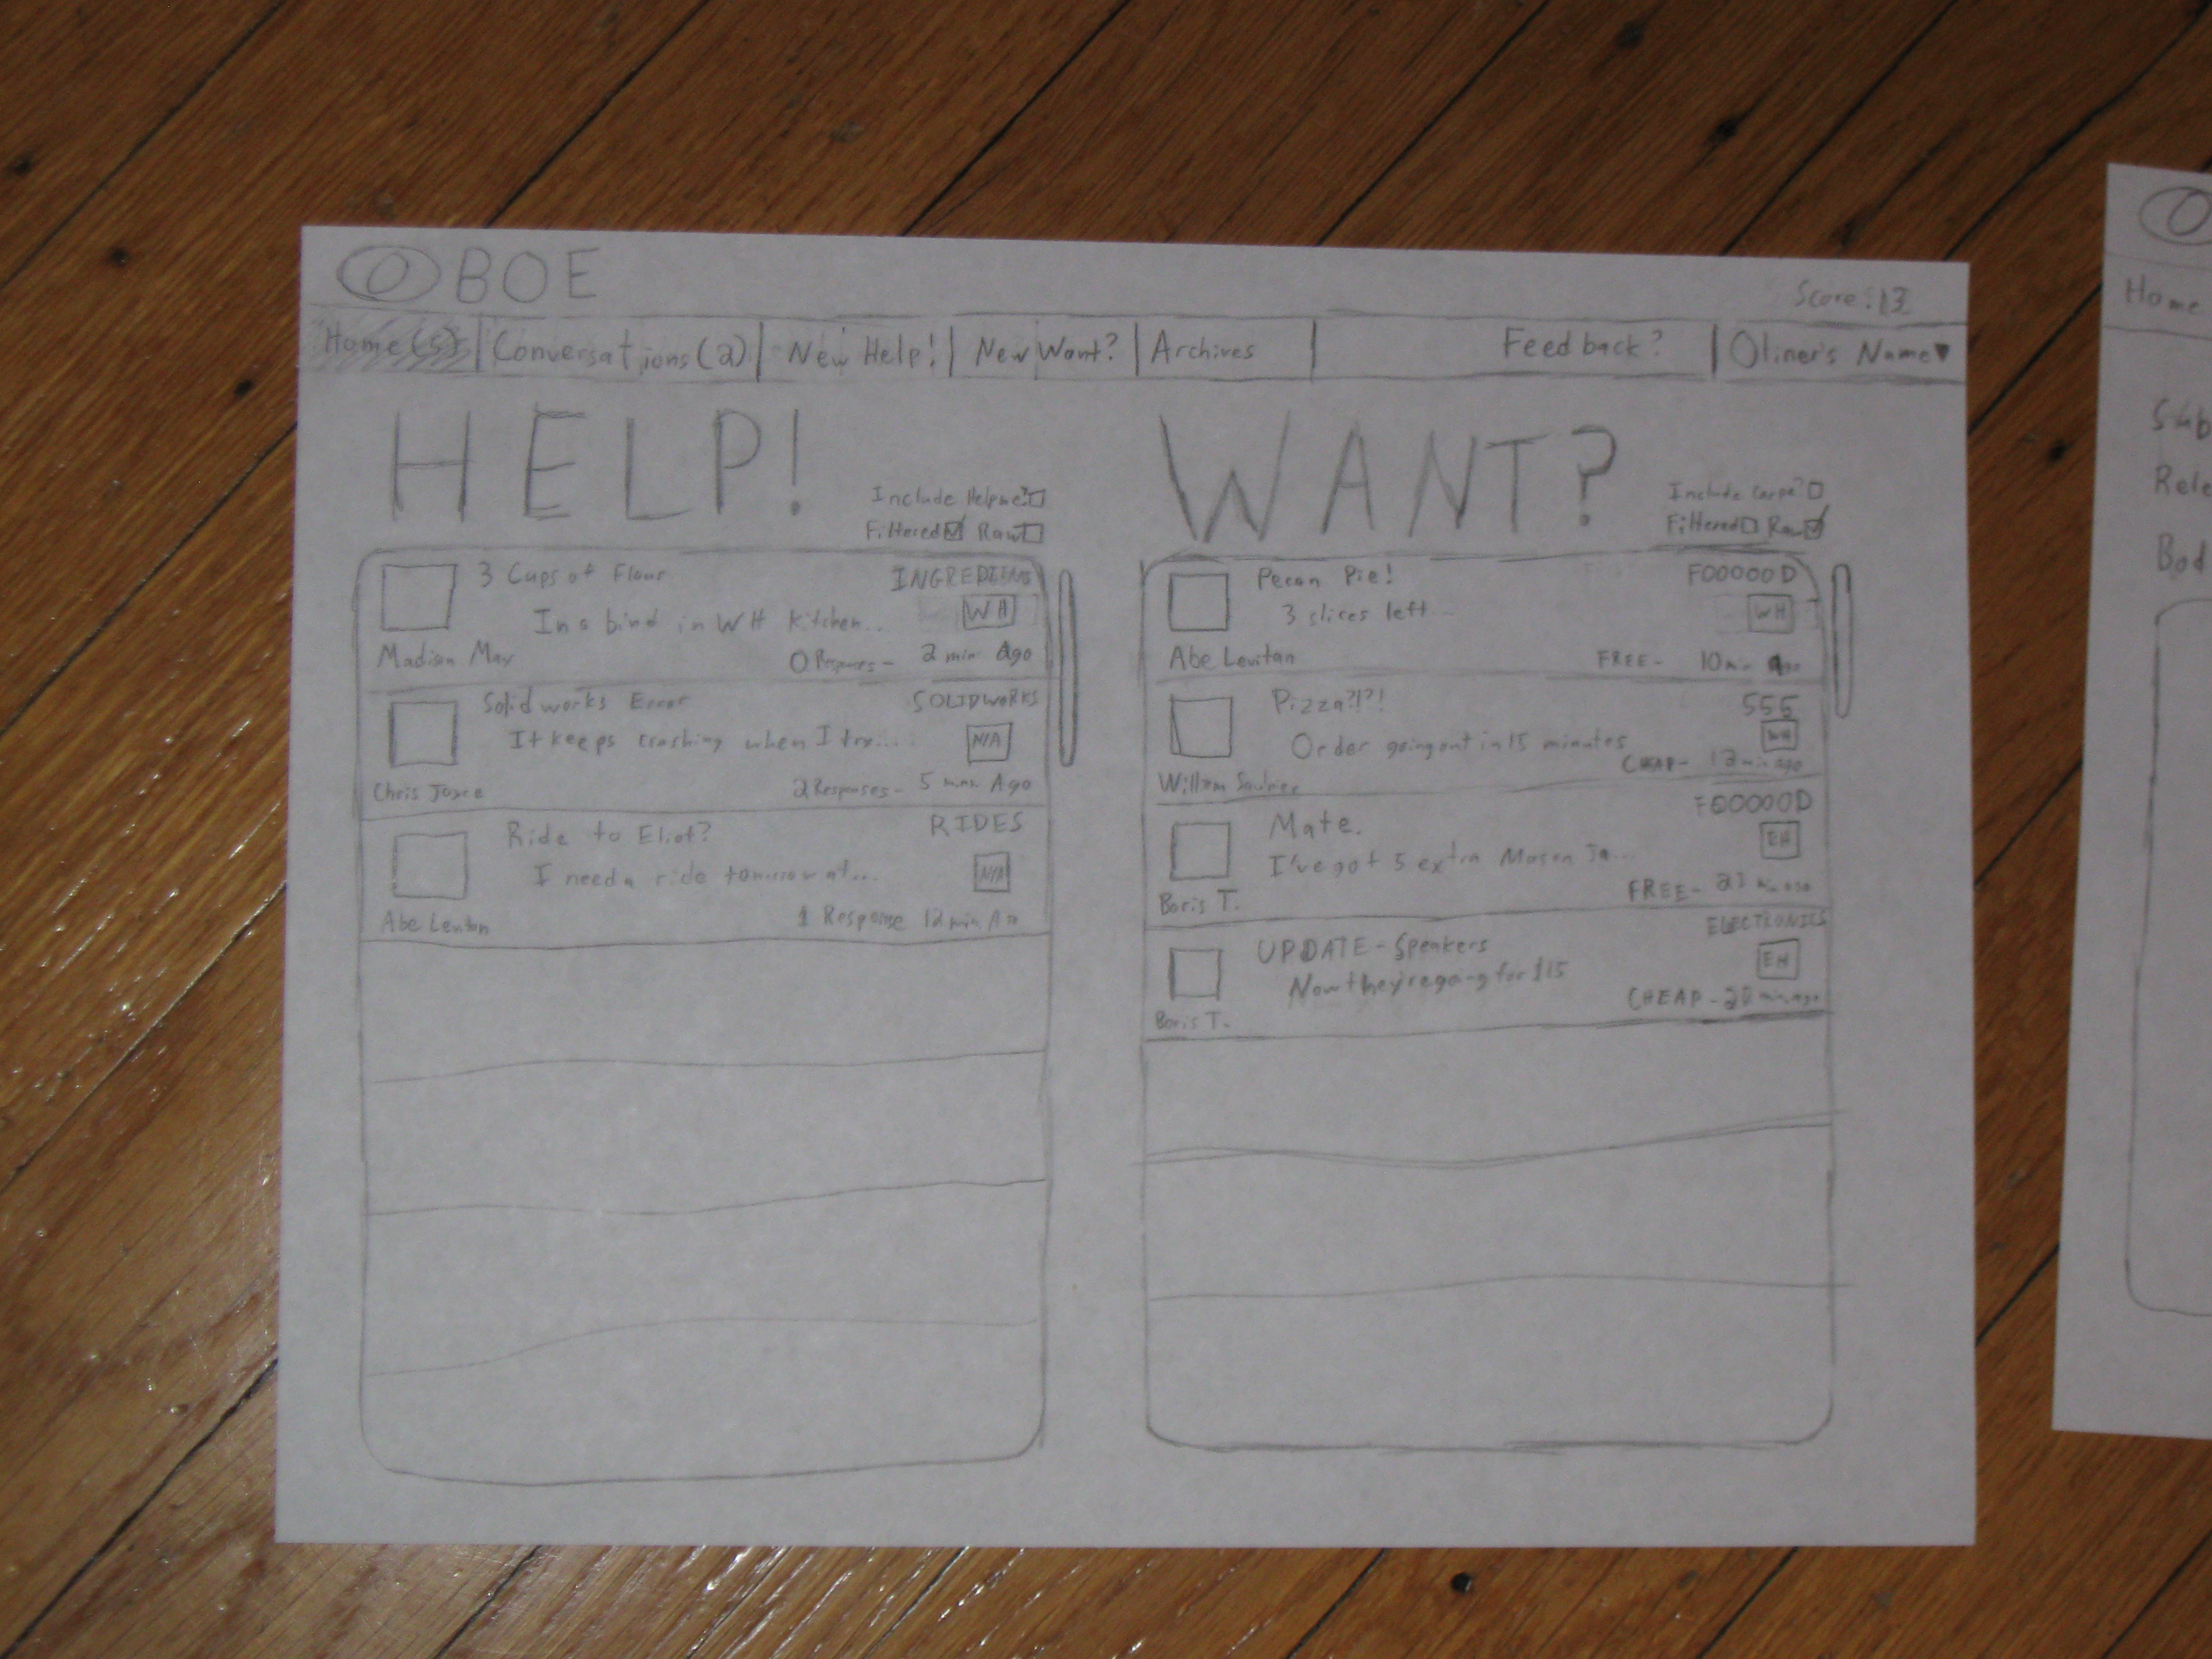 OBOE
Score: 13
Home (5) Conversations (2) New Help! New Want? Archives Feedback? Oliner's Name
HELP!
Include Helpme?
Filtered Raw
3 Cups of Flour INGREDIENTS
In a bind in WH Kitchen... WH
Madison May 0 Responses - 2 min Ago
Solidworks Error SOLIDWORKS
It keeps crashing when I try... N/A
Chris Joyce 2 Responses - 5 min Ago
Ride to Eliot? RIDES
I need a ride tomorrow at... N/A
Abe Levitan 1 Response 12 min Ago
WANT?
Include Carpe?
Filtered Raw
Pecan Pie! FOOOOOD
3 slices left... WH
Abe Levitan FREE - 10 min ago
Pizza?!?! SSS
Order going out in 15 minutes WH
William CHEAP - 12 min ago
Mate. FOOOOOD
I've got 5 extra Mason Ja... EH
Boris T. FREE - min ago
UPDATE - Speakers ELECTRONICS
Now they're going for $15 EH
Boris T. CHEAP - min ago
O
Home
Sub
Rele
Bod